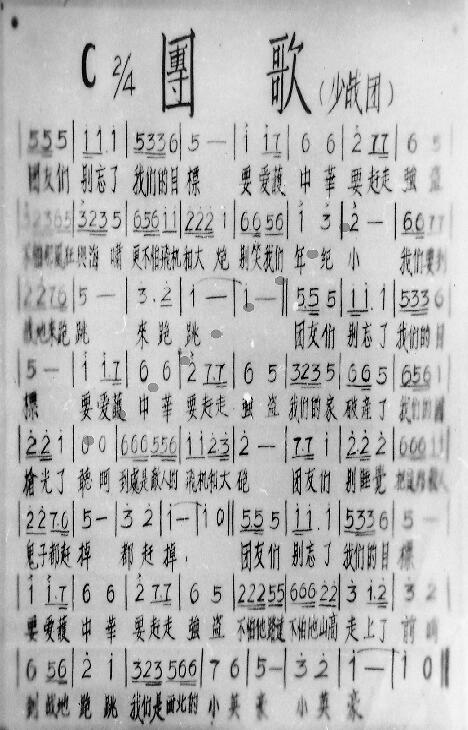 C 2/4 團 歌 (少战团)
5 5 5 | i i. i | 5 3 3 6 | 5 — | i i 7 | 6 6 | 2 7 7 | 6 5
团友们 别忘了 我们的目標 要爱護 中華 要赶走 強盗
3 2 3 5 | 6 5 6 i i | 2 2 2 i | 6 6 5 6 | i 3 | 2 — | 6 6 7 7
海嘯 更不怕飛机和大炮 别笑我们 年纪小 我们要到
2 2 7 6 | 5 — | 3. 2 | i — | i — || 5 5 5 | i i. i | 5 3 3 6
战地来跑 跳 来跑 跳 团友们 别忘了 我们的目
5 — | i i. 7 | 6 6 | 2 7 7 | 6 5 | 3 2 3 5 | 6 6 5 | 6 5 6 i
標 要爱護 中華 要赶走 強盗 我们的家 破産了 我们的國
2 2 i | 0 0 | 6 6 6 5 5 6 | i i 2 3 | 2 — | 7 7 i | 2 2 2 | 6 6 6 i i
搶光了 聽啊 到處是敵人的 飛机和大砲 团友们 别睡覺
2 2 7 6 | 5 — | 3 2 | i — | i 0 || 5 5 5 | i i. i | 5 3 3 6 | 5 —
鬼子都赶 掉 都赶 掉. 团友们 别忘了 我们的目 標
i i. 7 | 6 6 | 2 7 7 | 6 5 | 2 2 2 5 5 | 6 6 6 2 2 | 3 i. 2 | 3 2
要爱護 中華 要赶走 強盗 不怕他路遠 不怕他山高 走上了 前哨
6 5 6 | 2 i | 3 2 3 5 6 6 | 7 6 | 5 — | 3 2 | i — | i 0 ||
到战地 跑跳 我们是西北的 小英豪 小英豪